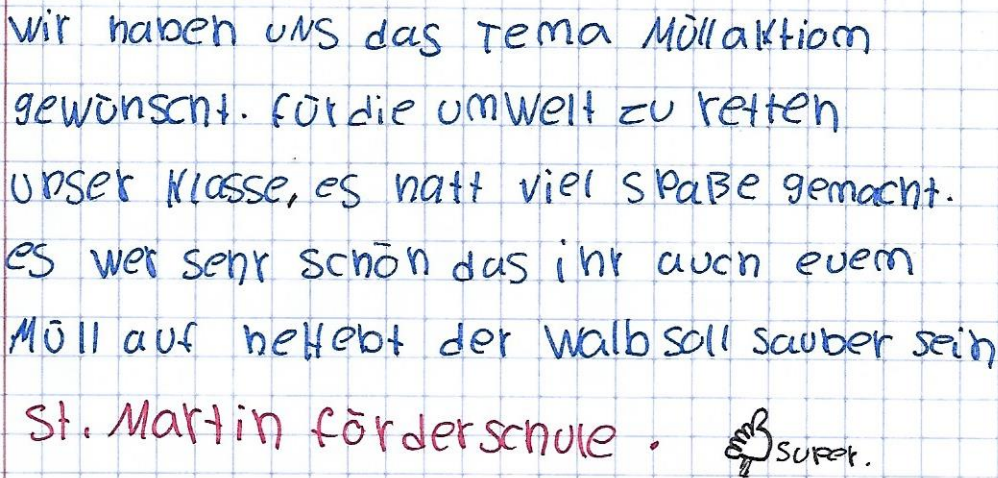 wir haben uns das Tema Müllaktiom
gewünscht. für die umwelt zu retten
unser Klasse, es hatt viel spaße gemacht.
es wer sehr schön das ihr auch euem
Müll auf hettebt der walb soll sauber sein
St. Martin förderschule. super.